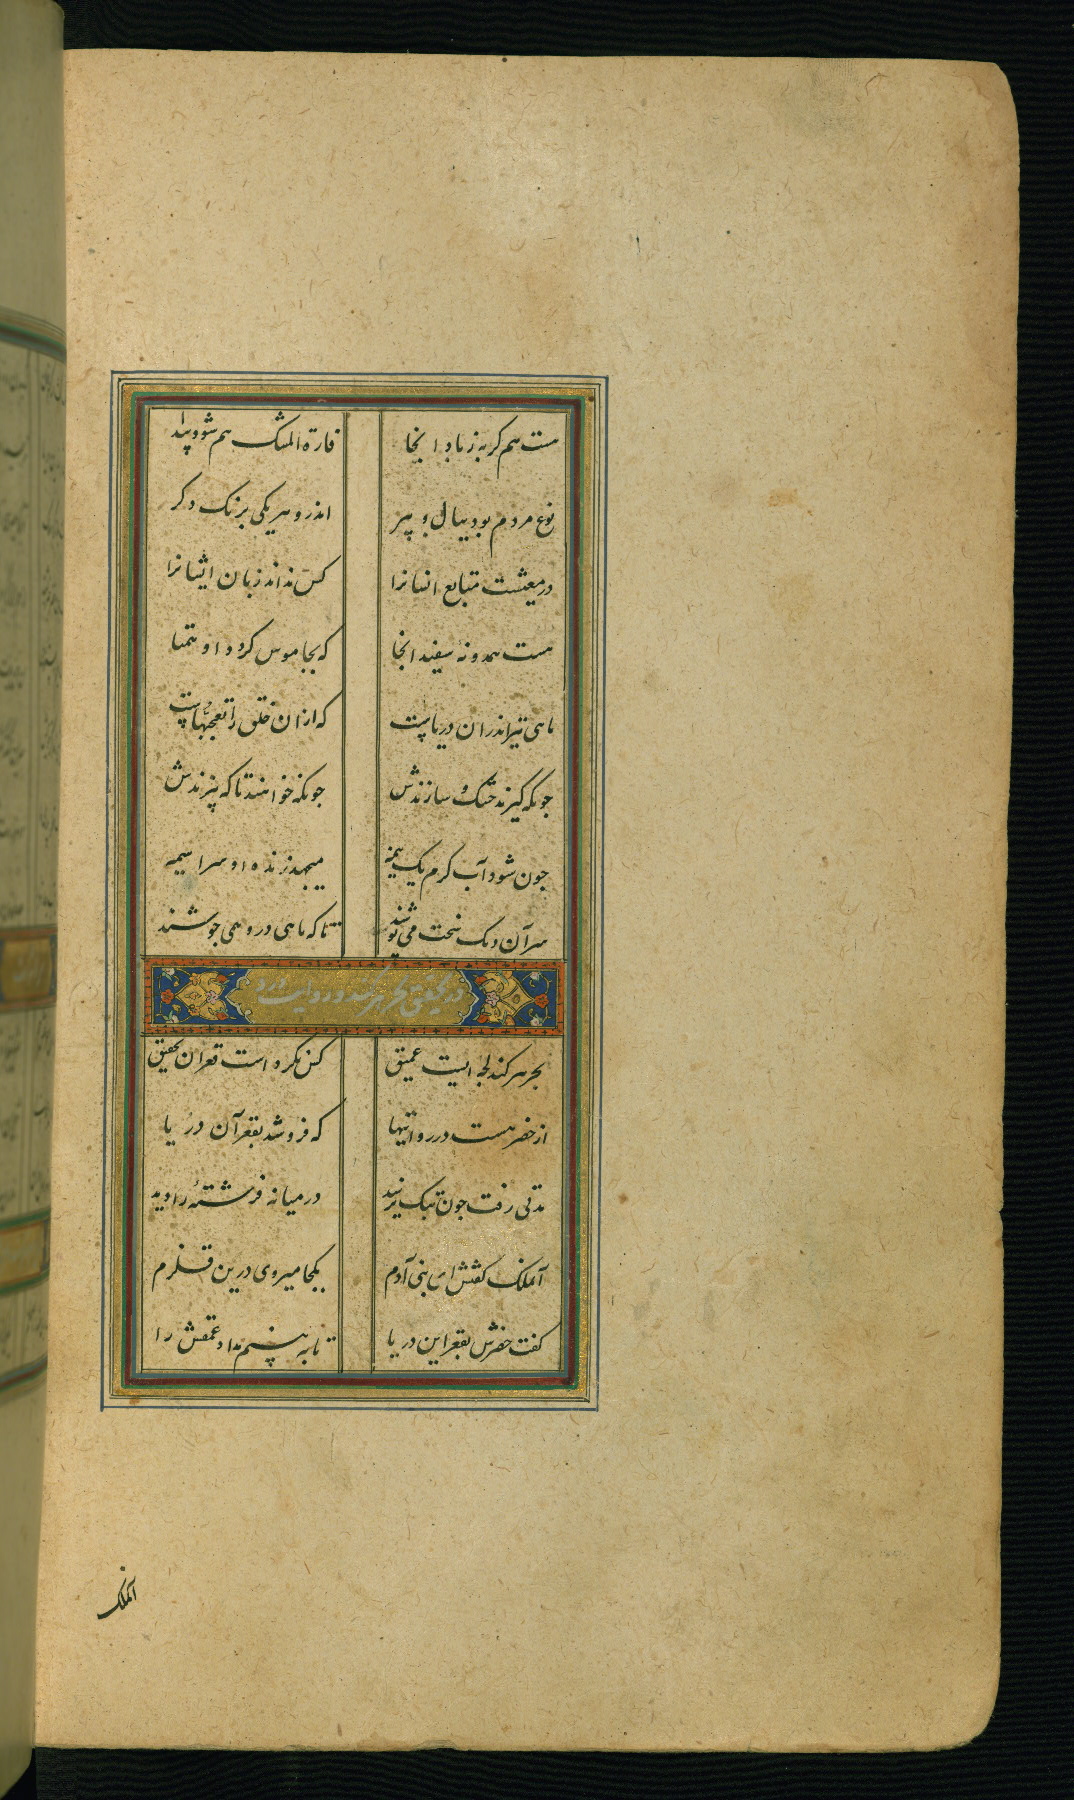 هست هم کربه زباد انجا فارة المشک هم شود پیدا
نوع مردم بود ببال و بپر اندرو هر یکی برنک دکر
در معیشت متابع انسانرا کس نداند زبان ایشانرا
هست همدونهٔ سفید انجا که بجاموس کردد او همتا
ماهی تیز اندران دریاست که ازان خلق را تعجبهاست
جونکه کیرند خشک سازندش جونکه خواهند تا که بپزندش
جون شود آب کرم یک نیمه میجهد زنده او سراسیمه
سر آن دیک سخت می‌پوشند تا که ماهی درو همی جوشند
در تحقیق بحر هرکند و روایت
بحر هرکند لجه ایست عمیق کس نکرده است قعر ان تحقیق
از خضر هست در روایتها که فرو شد بقعر آن دریا
مدتی رفت جون در میانه فرشتهٔ را دید
آنملک کفتش ای بنی آدم بکجا میروی درین قلزم
کفت خضرش بقعر این دریا تا به بینم مداد عمقش را
آنملک